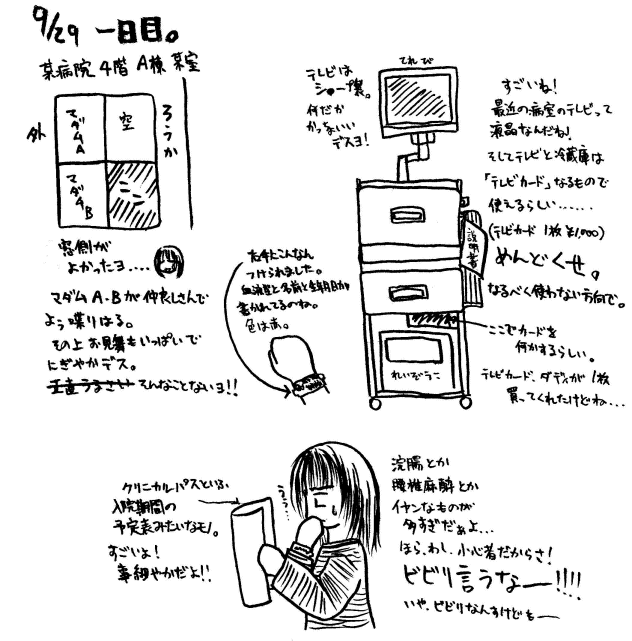 9/29 一日目。
某病院 4階 A棟 某室
外
マダムA
空
マダムB
ろうか
窓側が
よかったヨ....
マダムA・Bが仲良しさんで
よう喋りはる。
その上お見舞もいっぱいで
にぎやかデス。
正直うるさい そんなことないヨ!!
右手にこんなん
つけられました。
血液型と名前と生年月日が
書かれてるのね。
色は赤。
テレビは
ショー壊。
何だか
かっちょいい
デスヨ!
てれび
説明書
れいぞうこ
すごいね!
最近の病室のテレビって
液晶なんだね!
そしてテレビと冷蔵庫は
「テレビカード」なるもので
使えるらしい......
(テレビカード 1枚 ¥1,000)
めんどくせ。
なるべく使わない方向で。
ここでカードを
何かするらしい。
テレビカード、ダディが1枚
買ってくれたけどね...
クリニカルパスという、
入院期間の
予定表みたいなモノ。
すごいよ!
事細やかだよ!!
うう...
浣腸とか
腰椎麻酔とか
イヤンなものが
多すぎだぁよ...
ほら、わし、小心者だからさ!
ビビリ言うなー!!!!
いや、ビビリなんすけどもー